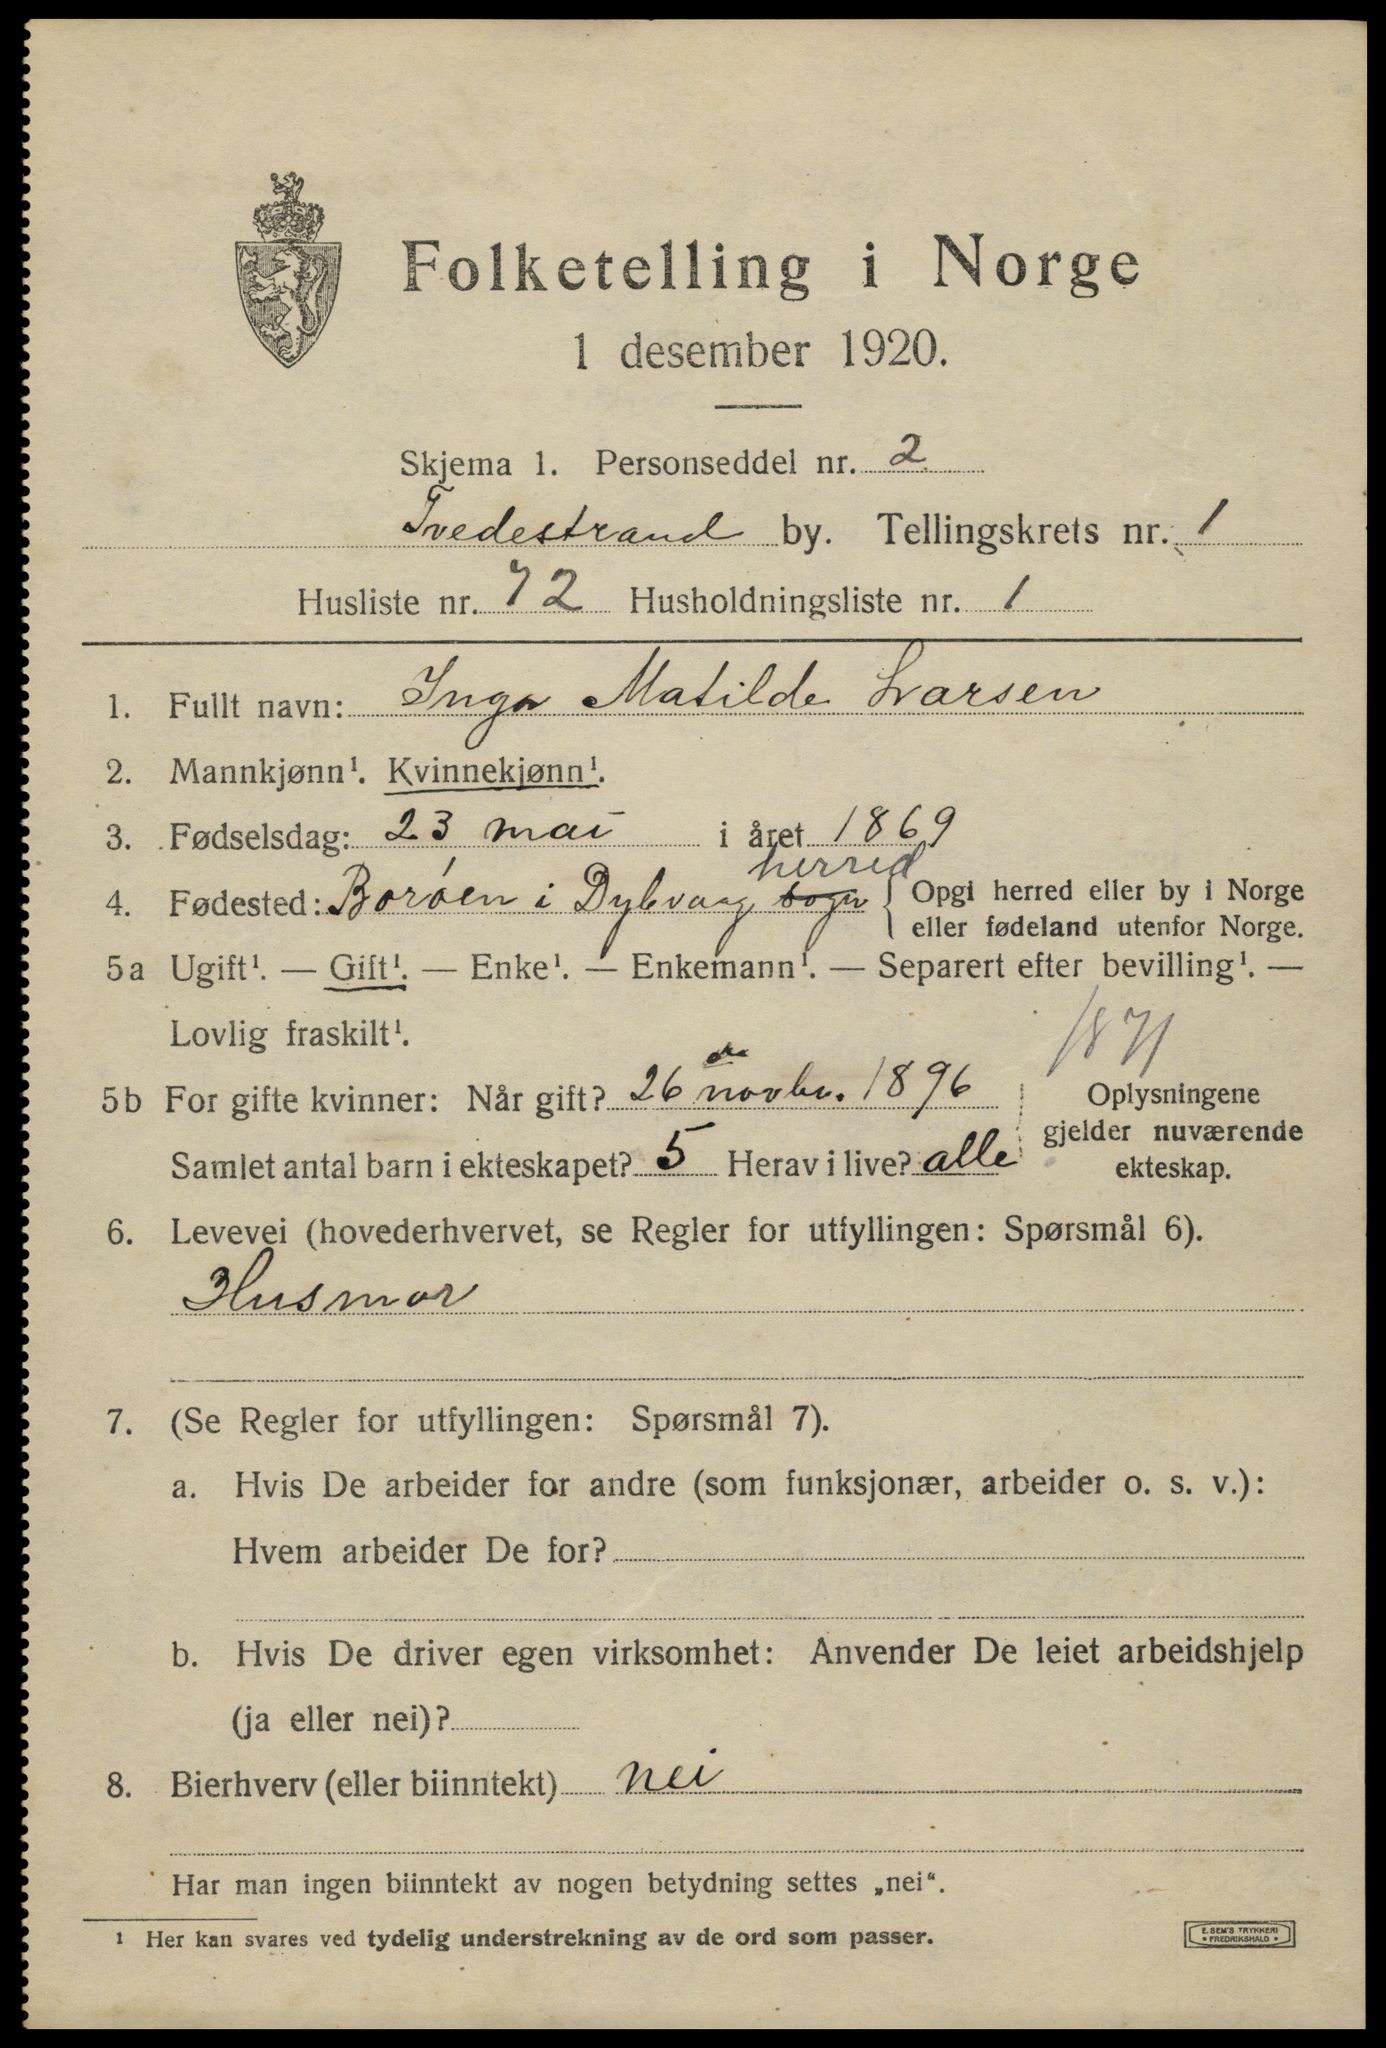 Folketelling i Norge
1 desember 1920.
Skjema 1. Personseddel nr. 2
Tvedestrand by. Tellingskrets nr. 1
Husliste nr. 72 Husholdningsliste nr. 1
1. Fullt navn: Inga Matilde Larsen
2. Mannkjønn¹. Kvinnekjønn¹.
3. Fødselsdag: 23 mai i året 1869
herred
4. Fødested: Borøen i Dybvaag sogn { Opgi herred eller by i Norge
eller fødeland utenfor Norge.
5a Ugift¹. — Gift¹. — Enke¹. — Enkemann¹. — Separert efter bevilling¹. —
Lovlig fraskilt¹.
1871
5b For gifte kvinner: Når gift? 26 de novbr. 1896
Samlet antal barn i ekteskapet? 5 Herav i live? alle
Oplysningene
gjelder nuværende
ekteskap.
6. Levevei (hovederhvervet, se Regler for utfyllingen: Spørsmål 6).
Husmor
7. (Se Regler for utfyllingen: Spørsmål 7).
a. Hvis De arbeider for andre (som funksjonær, arbeider o. s. v.):
Hvem arbeider De for?
b. Hvis De driver egen virksomhet: Anvender De leiet arbeidshjelp
(ja eller nei)?
8. Bierhverv (eller biinntekt) nei
Har man ingen biinntekt av nogen betydning settes „nei“.
¹ Her kan svares ved tydelig understrekning av de ord som passer.
E. SEM'S TRYKKERI
• FREDRIKSHALD •